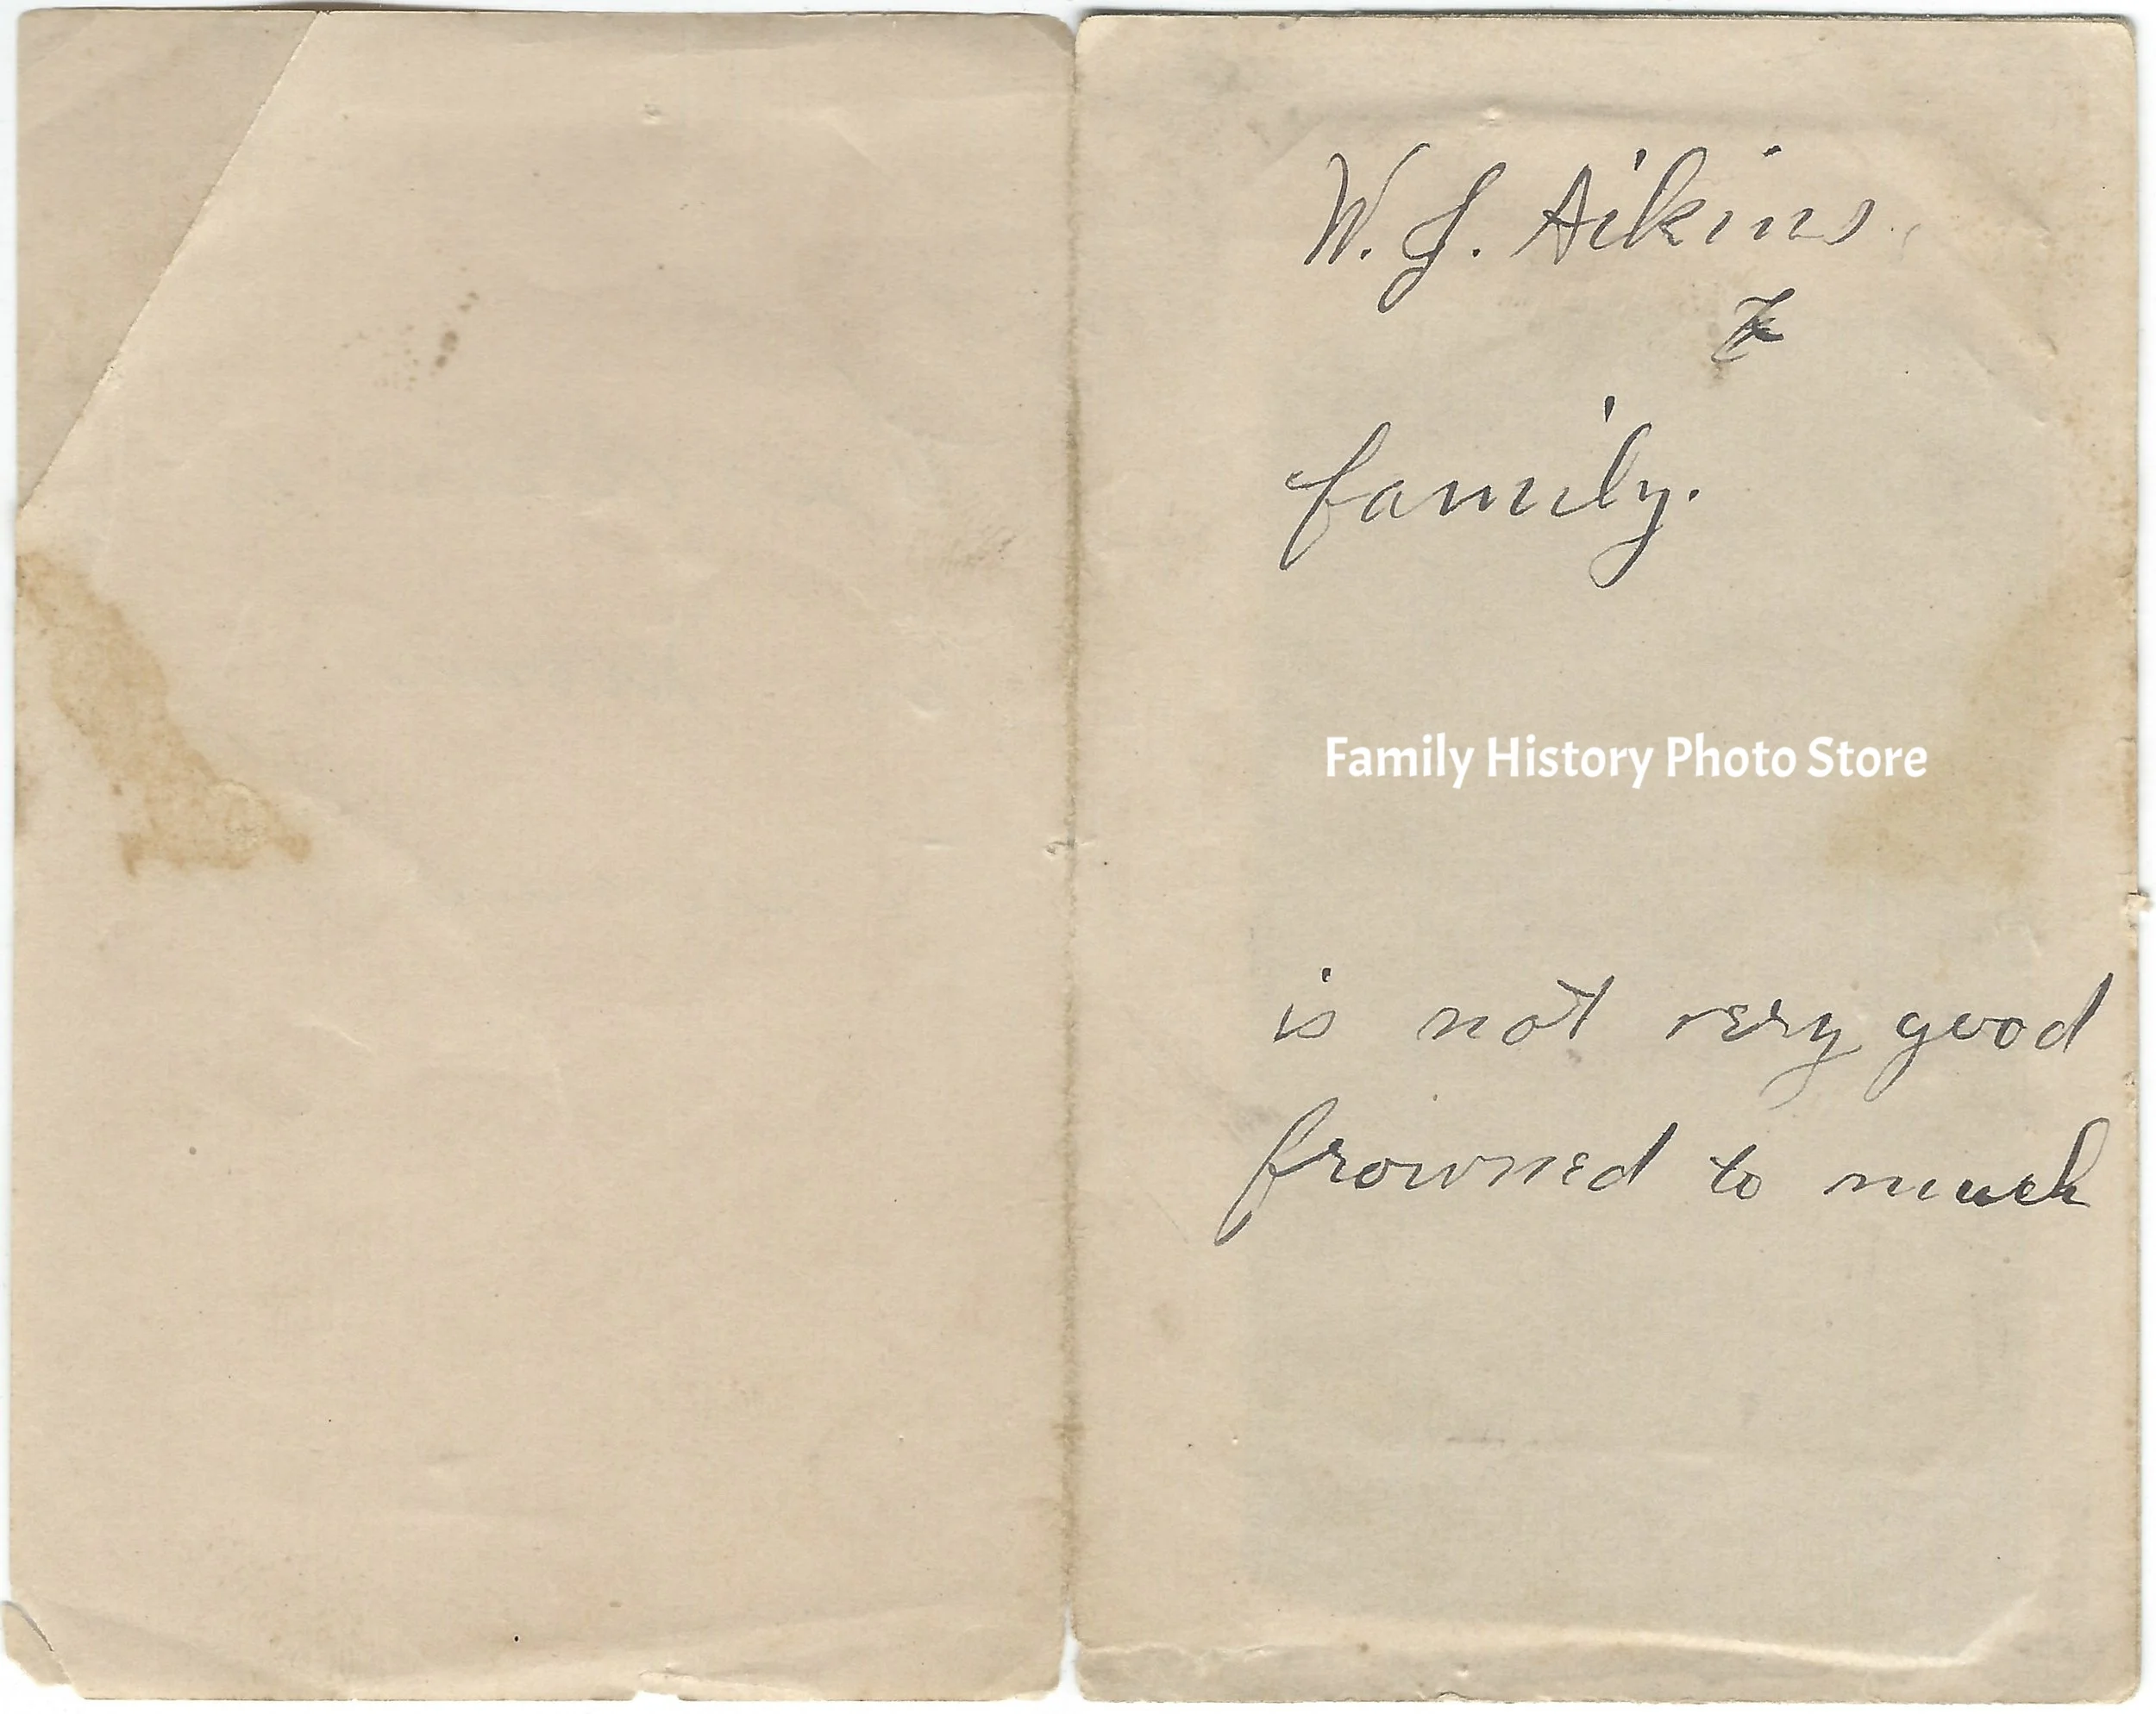 W. J. Aikins.
&
family.
Family History Photo Store
is not very good
frowned to much